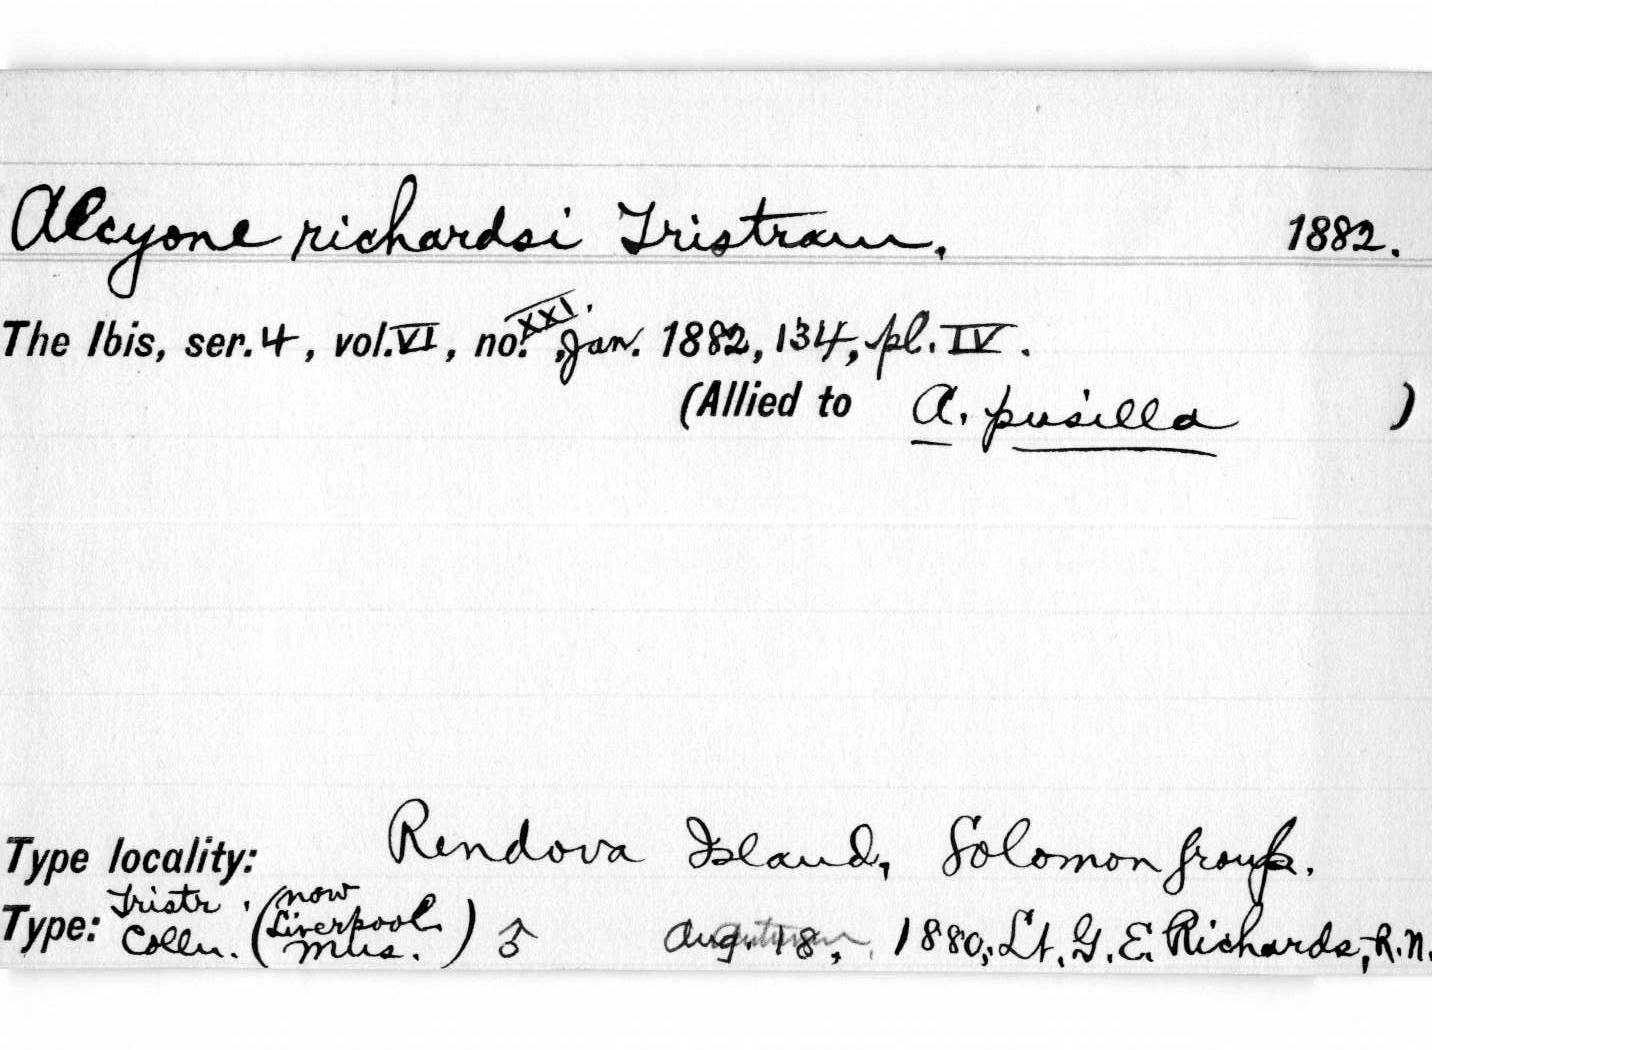 Alcyone richardsi Tristram. 1882.
The Ibis, ser. 4, vol. VI, no. XXI. , Jan. 1882, 134, pl. IV.
(Allied to A. pusilla )
Type locality: Rendova Island, Solomon Group.
Type: Tristr. Colln. (now Liverpool Mus.) ♂ Aug. 18, 1880, Lt. G. E. Richards, R.N.